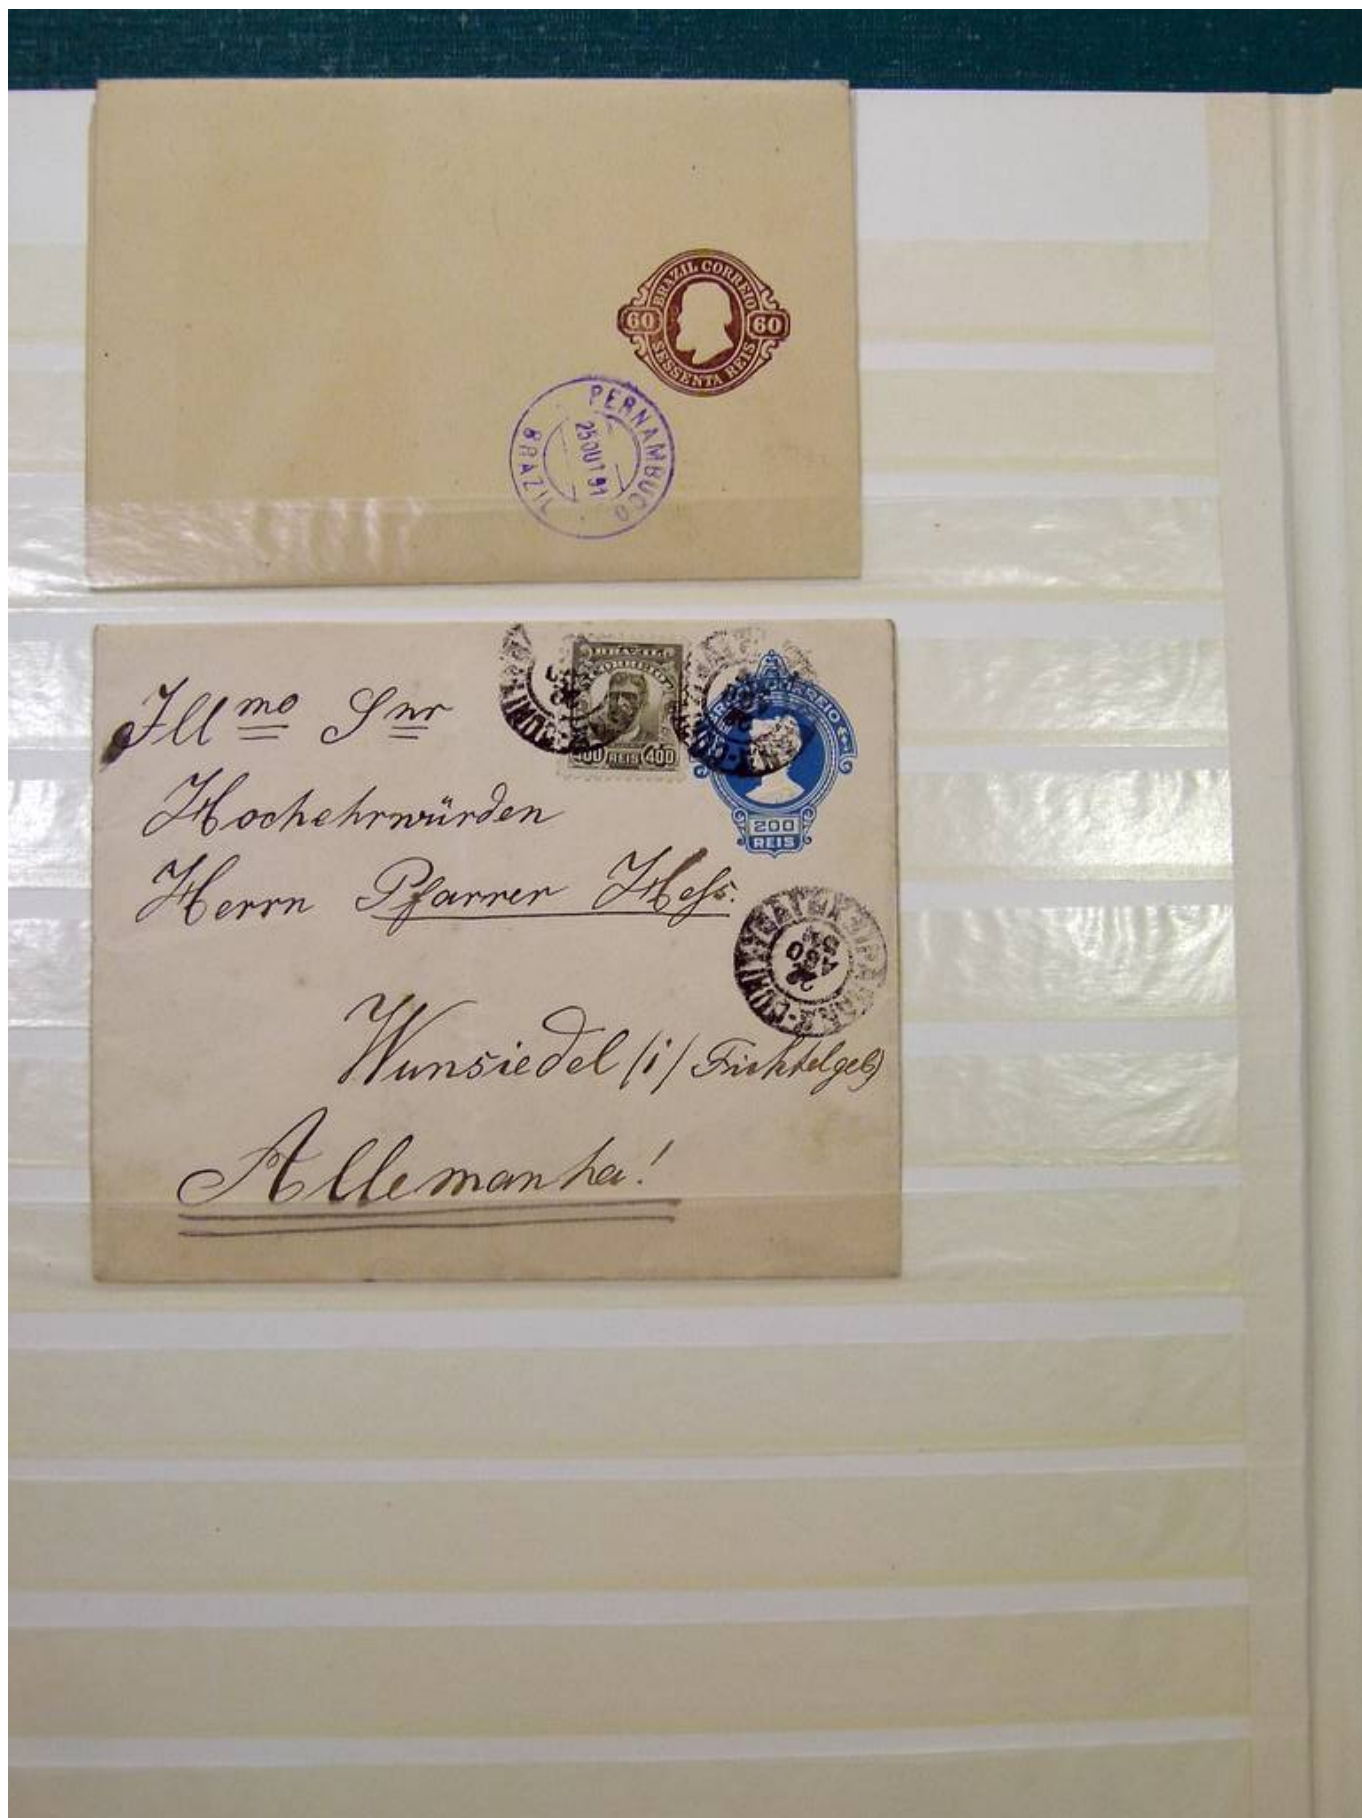 BRAZIL CORREIO
60 60
SESSENTA REIS
PERNAMBUCO
25 OUT 91
BRAZIL
BRAZIL
CORREIO
400 REIS 400
CORREIO
200
REIS
Illmo Snr
Hochehrwürden
Herrn Pfarrer Hess.
AGO
Wunsiedel /i/ Fichtelgeb
Allemanha!